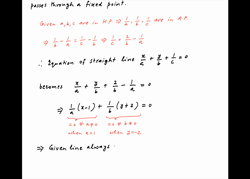 passes through a fixed point.
Given a,b,c are in H.P ⇒ 1/a, 1/b, 1/c are in A.P.
⇒ 1/b - 1/a = 1/c - 1/b ⇒ 1/c = 2/b - 1/a
∴ Equation of straight line x/a + y/b + 1/c = 0
becomes x/a + y/b + 2/b - 1/a = 0
⇒ 1/a (x-1) + 1/b (y+2) = 0
when x=1 when y=-2
⇒ Given line always